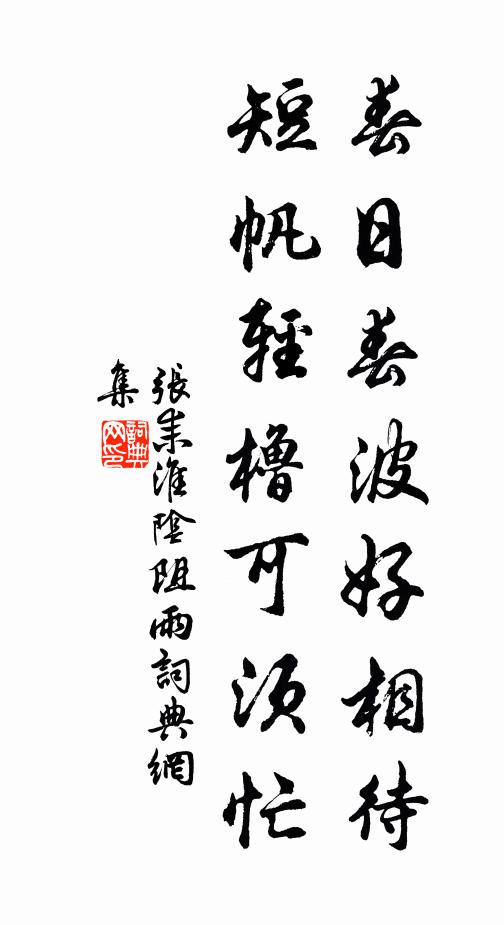 春日春波好相待
短帆輕櫓可須忙
張耒淮陰阻雨詞典網
集
詞典
网印